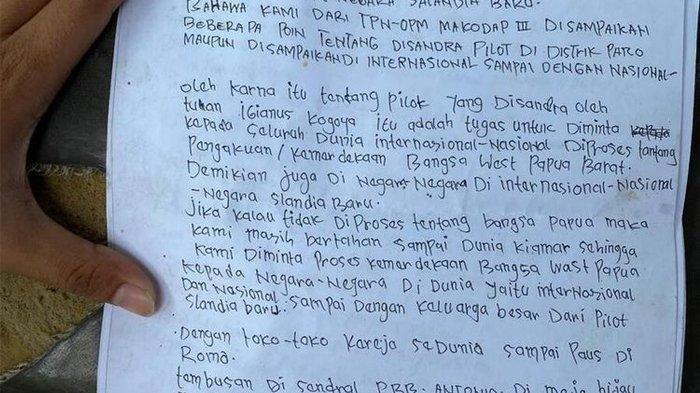 NEGARA SALANDIA BARU.
BAHAWA KAMI DARI TPN-OPM MAKODAP III DISAMPAIKAN
BEBERAPA POIN TENTANG DISANDRA PILOT DI DISTRIK PARO
MAUPUN DISAMPAIKANDI INTERNASIONAL SAMPAI DENGAN NASIONAL-
oleh karna itu tentang pilot yang Disandra oleh
tuhan igianus kogoya itu adalah tugas untuk Diminta kepada
kepada seluruh Dunia internasional-Nasional DiProses tantang
Pangakuan/kamardekaan Bangsa West Papua Barat.
Demikian juga Di Negara-Negara Di internasional-Nasional
-Negara slandia Baru.
Jika kalau tidak DiProses tentang bangsa papua maka
kami masih bertahan sampai Dunia kiamar sehingga
kami Diminta Proses kemardekaan Bangsa Wast Papua
kepada Negara-Negara Di Dunia yaitu internasional
Dan Nasional. sampai Dengan keluarga besar Dari Pilot
Slandia baru.
.Dengan toko-toko Kareja seDunia sampai Paus Di
Roma.
tambusan Di sandral PBB. ANTONIO Di meja hijau